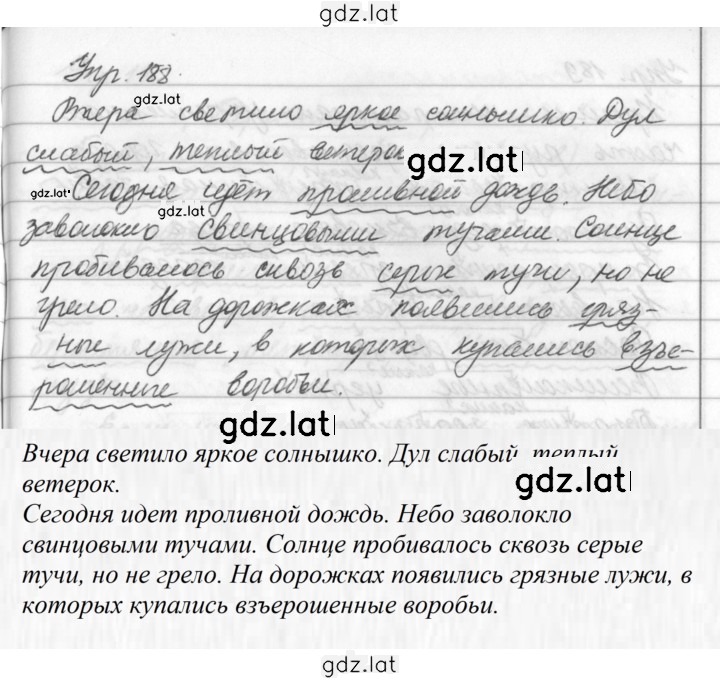 gdz.lat
Упр. 188.
gdz.lat
Вчера светило яркое солнышко. Дул
слабый, теплый ветерок
gdz.lat
gdz.lat
Сегодня идёт проливной дождь. Небо
gdz.lat
заволокло свинцовыми тучами. Солнце
пробивалось сквозь серые тучи, но не
грело. На дорожках появились гряз-
ные лужи, в которых купались взъе-
рошенные воробьи.
gdz.lat
Вчера светило яркое солнышко. Дул слабый, теплый
ветерок.
gdz.lat
Сегодня идет проливной дождь. Небо заволокло
свинцовыми тучами. Солнце пробивалось сквозь серые
тучи, но не грело. На дорожках появились грязные лужи, в
которых купались взъерошенные воробьи.
gdz.lat